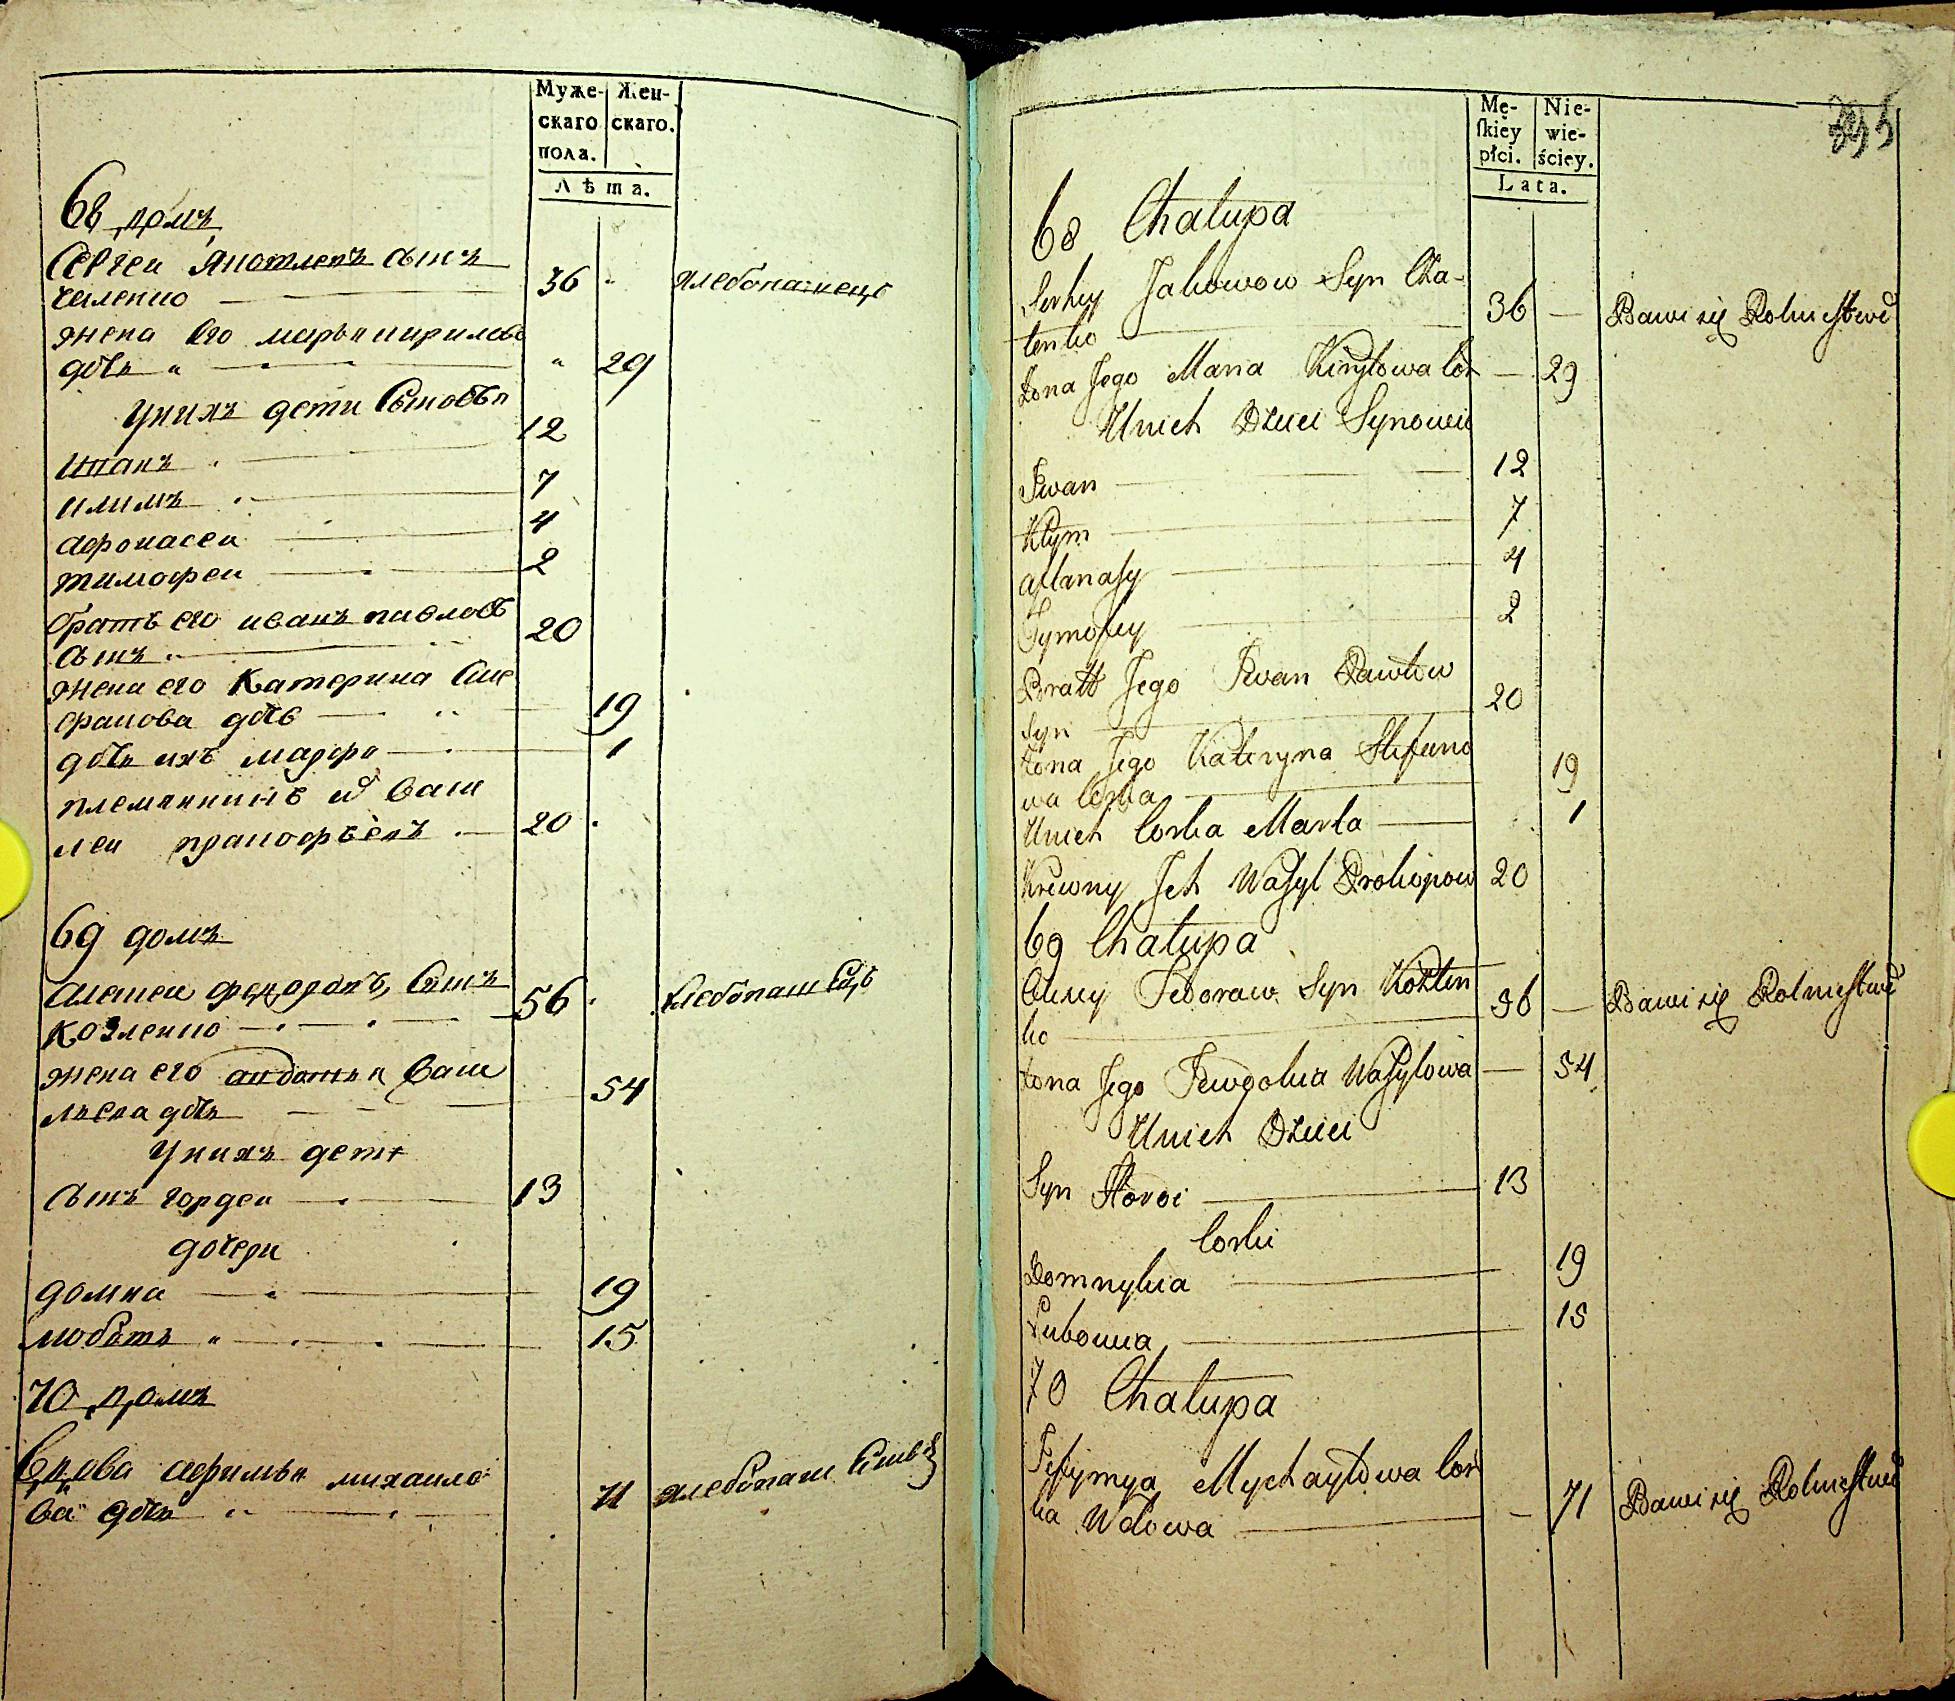 Муже-
скаго
пола.
Жен-
скаго.
Лѣта.
68 домъ
Сергеи Яковлевъ сынъ
чаленко
36
хлебопашецъ
жена его марья кирилова
дочь
29
У нихъ дети Сыновья
Иванъ
12
климъ
7
афонасеи
4
тимофеи
2
братъ его иванъ павловъ
сынъ
20
жена его Катерина Сте
фанова дочь
19
дочь ихъ марфа
1
племянникъ Васи
леи прокофьевъ
20
69 домъ
Алексеи федоровъ Сынъ
Козленко
56
хлебопашецъ
жена его авдотья Васи
льева дочь
54
У нихъ дети
сынъ гордеи
13
дочери
домна
19
любовь
15
70 домъ
Вдова афимья михаило
ва дочь
71
Mę-
skiey
płci.
Nie-
wie-
ściey.
Lata.
68 Chałupa
Serhey Jakowow Syn Cza-
lenko
36
Bawi się Rolnictwem
Żona Jego Maria Kiryłowa Cor
29
U nich Dzieci Synowie
Iwan
12
Kłym
7
Aftanasy
4
Tymofiey
2
Bratt Jego Iwan Pawłow
Syn
20
Żona Jego Kateryna Stefano
wa Corka
19
U nich Corka Marta
1
Krewny Jch Wasyl Prokopow
20
69 Chałupa
Olexiy Fedorow Syn Kozlen
ko
56
Bawi się Rolnictwem
Żona Jego Jewdokia Wasylowa
54
U nich Dzieci
Syn Hordi
13
Corki
Domnykia
19
Lubowia
15
70 Chałupa
Jefymya Mychayłowa Cor
ka Wdowa
71
Bawi się Rolnictwem